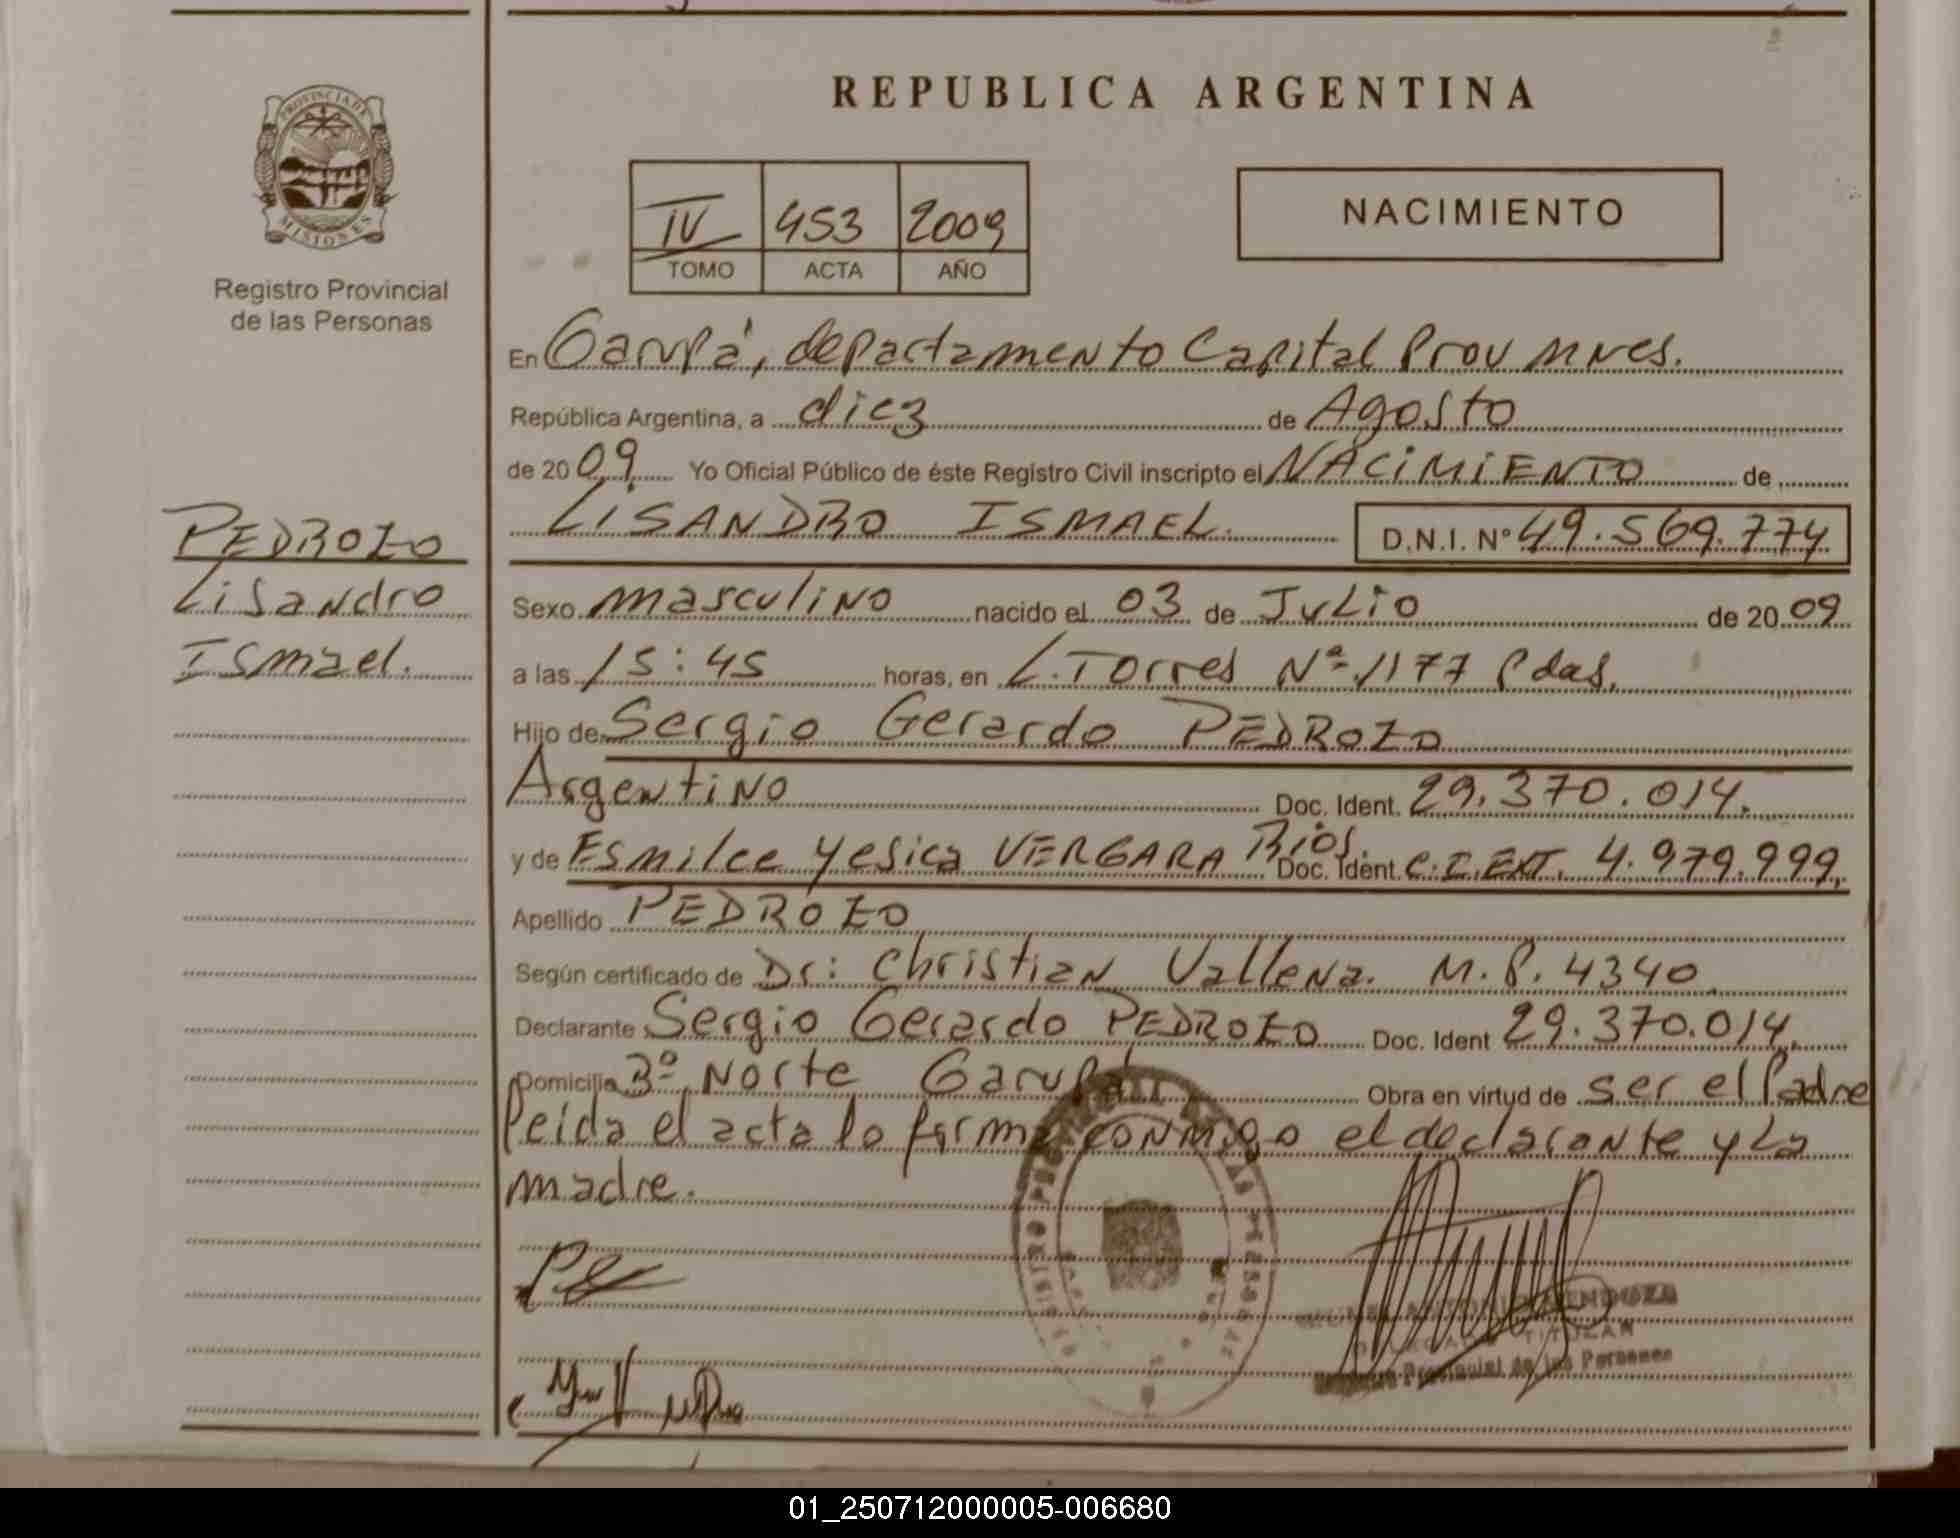 REPUBLICA ARGENTINA
PROVINCIA DE
MISIONES
Registro Provincial
de las Personas
IV 453 2009
TOMO ACTA AÑO
NACIMIENTO
En Garupá, departamento Capital Prov Mnes.
República Argentina, a diez de Agosto
de 2009 Yo Oficial Público de éste Registro Civil inscripto el NACIMIENTO de
LISANDRO ISMAEL. D.N.I. Nº 49.569.774
PEDROZO
Lisandro
Ismael.
Sexo masculino nacido el 03 de Julio de 2009
a las 15:45 horas, en L. Torres Nº 1177 Pdas.
Hijo de Sergio Gerardo PEDROZO
Argentino Doc. Ident. 29.370.014.
y de Esmilce Yesica VERGARA Ríos. Doc. Ident. C.I.EXT. 4.979.999.
Apellido PEDROZO
Según certificado de Dr: Christian Vallena. M.P. 4340
Declarante Sergio Gerardo PEDROZO Doc. Ident 29.370.014.
Domicilio 3º Norte Garupá Obra en virtud de ser el Padre
leida el acta lo firma conmigo el declarante y La
madre.
ANTONIO MENDOZA
TITULAR
Provincial de las Personas
01_250712000005-006680